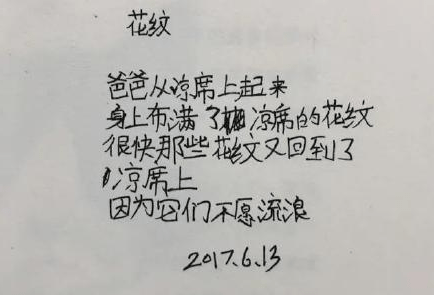 花纹
爸爸从凉席上起来
身上布满了凉席的花纹
很快那些花纹又回到了
凉席上
因为它们不愿流浪
2017.6.13